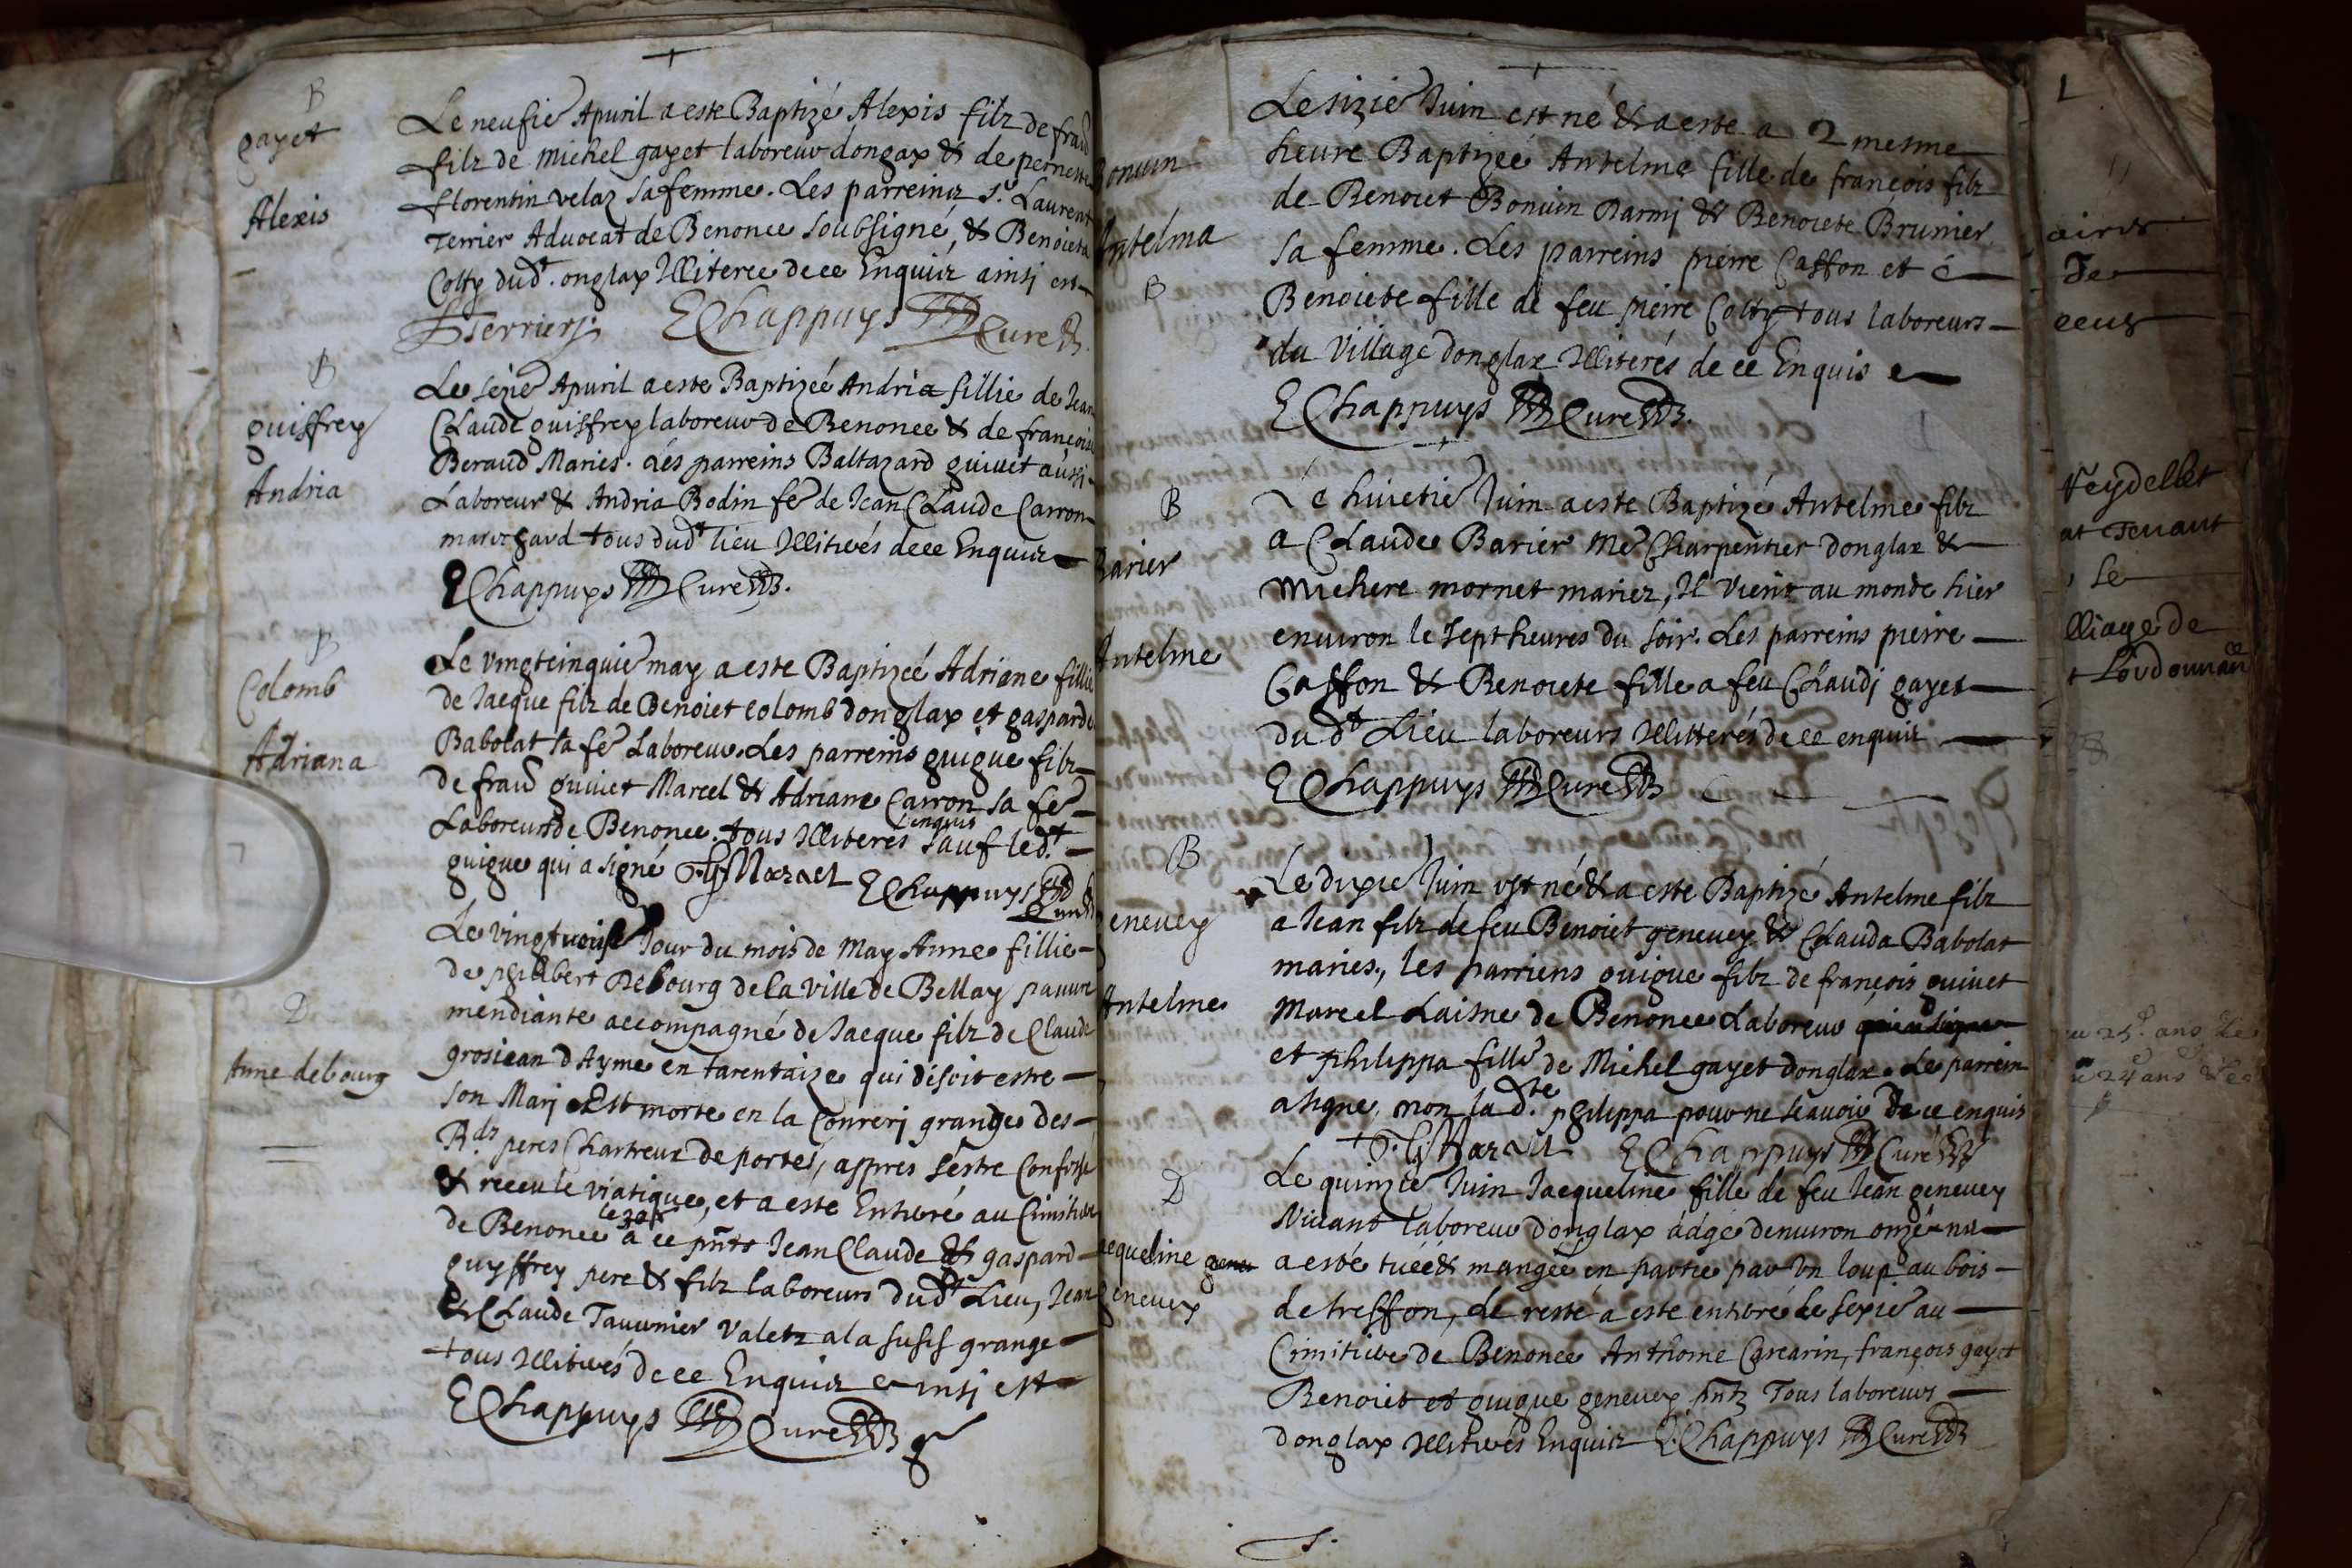 B
gayet
Alexis
Le neufie Apuril a este Baptizé Alexis filz de frac
filz de michel gayet laboreur donglax & de pernette
florentin velaz sa femme. Les parreinz Sr Laurent
Terrier Aduocat de Benonce soubsigné, & Benoiete
Colty dud.t onglax Illiteree de ce Enquiz ainsj est
Terrierj. EChappuys Cure
B
guiffrey
Andria
Le sezie Apuril a este Baptizeé Andria fillie de Jean
Claude guiffrey laboreur de Benonce & de françoise
Beraud Maries. Les parreins Baltazard guiuet aussi
Laboreur & Andria Bodin fe de Jean Claude Carron
marichand tous dud.t lieu Illiterés de ce Enquiz
EChappuys Cure
B
Colomb
Adriana
Le vingtcinquie may a este Baptizeé Adriane fillie
de Jacque filz de Benoiet colomb donglax et gasparde
Babolat sa fe Laboreur. Les parreins guigue filz
de frac guiuet Marcel & Adriane Carron sa fe
Laboreurs de Benonce. tous Illiteres enquis sauf led.t
guigue qui a signé F. G. Marcel EChappuys
Cure
D
Anne debourg
Le vingt Jour du mois de May Anne fillie
de philibert Debourg de la ville de Bellay pauure
mendiante accompagné de Jacque filz de Claude
grosiean d'Ayme en tarentaize qui disoit estre
son Marj Est morte en la Conrerj grange des
Rds peres Chartreux de portes, appres s'estre Confessé
& receu le viatique, et a este Enterré au Cimitiere
de Benonce a ce pnts Jean Claude & gaspard
guyffrey pere & filz laboreurs dud.t Lieu, Jean
& Claude Tauernier valetz a la susd grange
tous Illiterés de ce Enquiz ainsj est
EChappuys Cure
Bonuin
Antelma
B
Le sizie Juin est né & a este a 2 mesme
heure Baptizeé Antelme fille de françois filz
de Benoiet Bonuin Darmj & Benoiete Brunier
sa femme. Les parreins pierre Caffon et
Benoiete fille de feu pierre Colty tous laboreurs
du Village donglax Illiterés de ce Enquis
EChappuys Cure
B
Barier
Antelme
Le huictie Juin a este Baptizé Antelme filz
a Claude Barier Me Charpentier donglax &
michere mornet mariez, Il vient au monde hier
enuiron le sept heures du soir. Les parreins pierre
Caffon & Benoiete fille a feu Claudj gayet
du d.t Lieu laboreurs Illitterés de ce enquiz
EChappuys Cure
B
geneuey
Antelme
Le dixie Juin est né & a este Baptizé Antelme filz
a Jean filz de feu Benoiet geneuey & Clauda Babolat
maries, les parriens guigue filz de françois guiuet
Marcel Laisne de Benonce Laboreur
et philippa fille de Michel gayet donglax. Le parrein
a signe, non la d.te philippa pour ne scauoir de ce enquis
F. G. Marcel EChappuys Curé
D
Jacqueline
geneuey
Le quinzie Juin Jacqueline fille de feu Jean geneuey
viuant laboreur donglax adgé denuiron onze ans
a esté tueé & mangeé en partie par vn loup au bois
de treffon, Le reste a este enterré le sezie au
Cimitiere de Benonce Anthoine Carcarin, françois gayet
Benoiet et guigue geneuey pntz Tous laboreurs
donglax Illiterés Enquiz EChappuys Cure
veydellet
at Tenant
le
lliage de